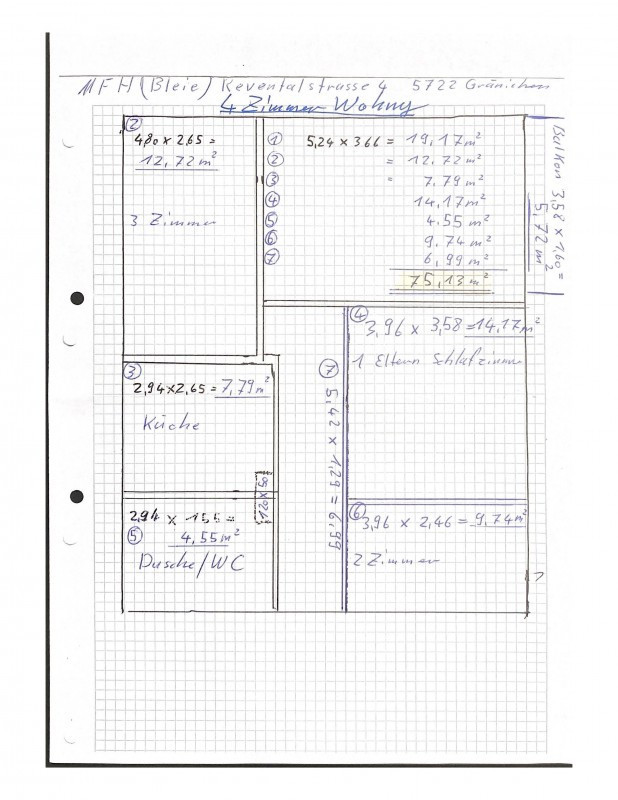 MFH (Bleie) Keventalstrasse 4 5722 Gränichen
4 Zimmer Wohng
②
4,80 x 2,65 =
12,72 m²
3 Zimmer
① 5,24 x 3,66 = 19,17 m²
② = 12,72 m²
③ = 7,79 m²
④ 14,17 m²
⑤ 4.55 m²
⑥ 9,74 m²
⑦ 6,99 m²
75,13 m²
Balkon 3,58 x 1,60 =
5,72 m²
③
2,94 x 2,65 = 7,79 m²
Küche
④
3,96 x 3,58 = 14,17 m²
1 Eltern Schlafzimm
⑦ 5,42 x 1,29 = 6,99
2,94 x 1,55 =
⑤ 4,55 m²
Dusche/WC
⑥
3,96 x 2,46 = 9,74 m²
2 Zimmer